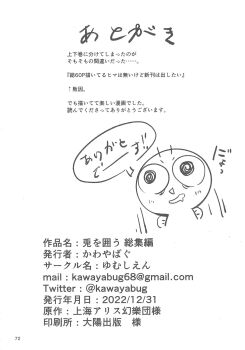 あとがき
上下巻に分けてしまったのが
そもそもの間違いだった……。
『総60P描いてるヒマは無いけど新刊は出したい』
↑敗因。
でも描いてて楽しい漫画でした。
読んでくださってありがとうございます。
ありがとー
ございます!!
作品名:兎を囲う 総集編
発行者:かわやばぐ
サークル名:ゆむしえん
mail:kawayabug68@gmail.com
Twitter:@kawayabug
発行年月日:2022/12/31
原作:上海アリス幻樂団様
印刷所:大陽出版 様
72